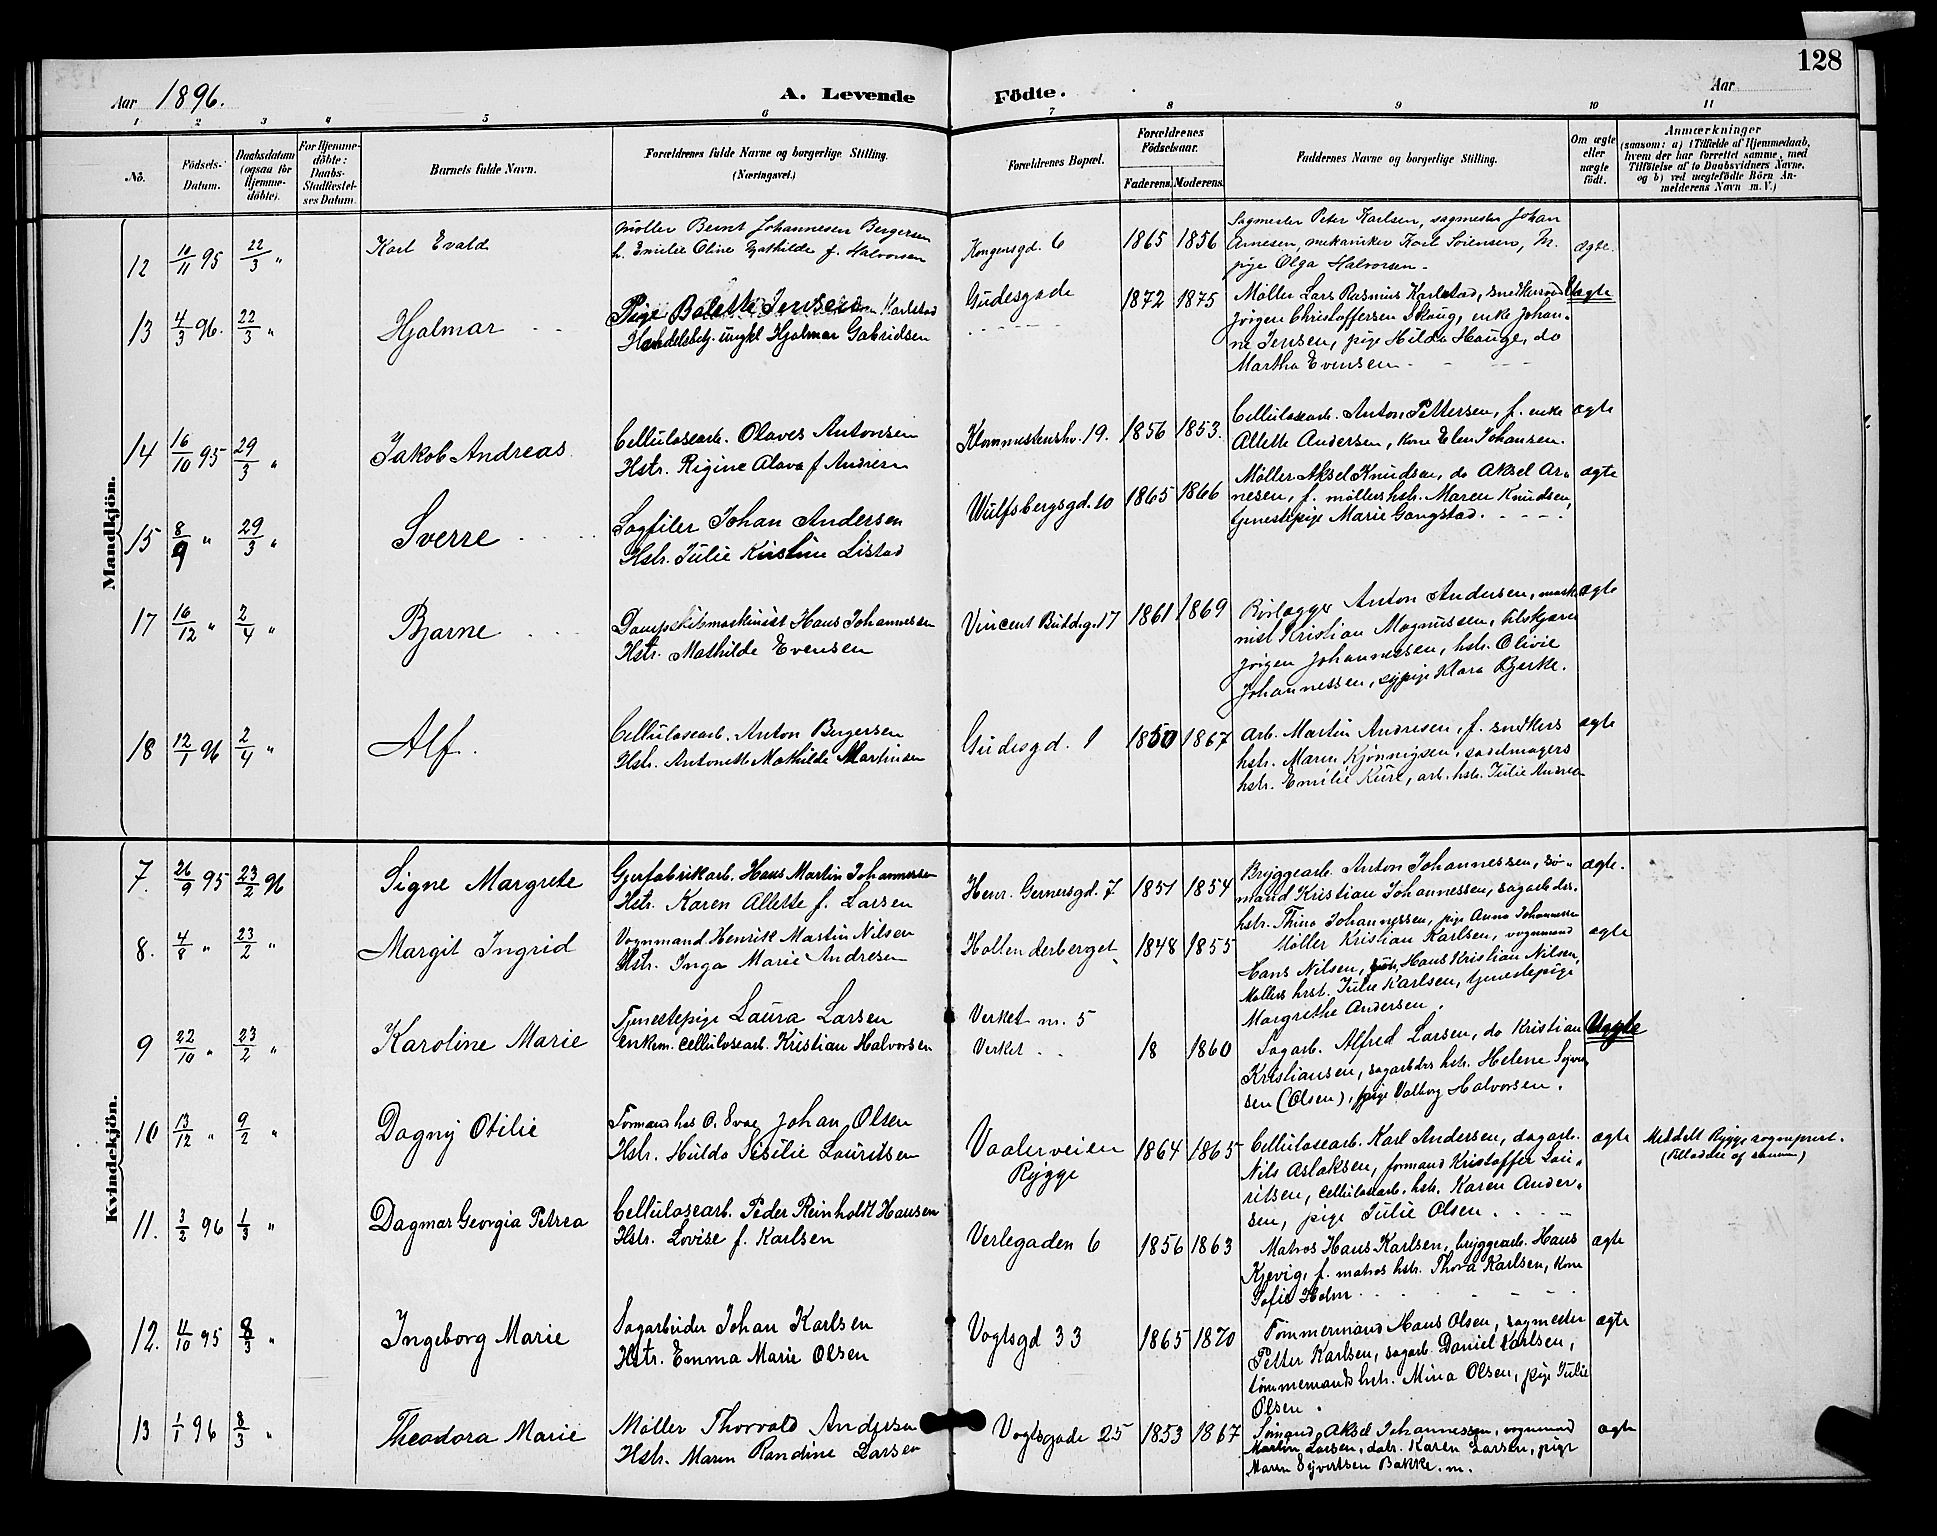 128
Aar 1896. A. Levende Födte. Aar
1 2 3 4 5 6 7 8 9 10 11
No. Födsels-Datum. Daabsdatum (ogsaa for Hjemme-döbte). For Hjemme-döbte: Daabs-Stadfæstel-ses Datum. Barnets fulde Navn. Forældrenes fulde Navne og borgerlige Stilling. (Næringsvei.) Forældrenes Bopæl. Forældrenes Födselsaar. Faderens. Moderens. Faddernes Navne og borgerlige Stilling. Om ægte eller uægte födt. Anmærkninger (saasom: a) i Tilfælde af Hjemmedaab, hvem der har forrettet samme, med Tilföielse af to Daabsvidners Navne, og b) ved uægtefödte Börn An-melderens Navn m. V.)
Mandkjön.
12 10/11 95 22/3 " Karl Evald
Møller Bernt Johannesen Bergersen
h. Emilie Oline Mathilde f. Halvorsen
Kongensgd. 6 1865 1856
Sagmester Peter Karlsen, sagmester Johan
Arnesen, mekaniker Karl Sörensen, M.
pige Olga Halvorsen
ægte.
13 4/3 96. 22/3 " Hjalmar
Pige Bolette Jensen Karlstad
Handelsbetj. ungkl Hjalmar Gabrielsen
Gudesgade 1872 1875
Møller Lars Rasmus Karlstad, snedkersvend
Jörgen Christoffersen Skoug, enke Johan-
ne Jensen, pige Hilda Hauge, do
Martha Evensen
Uægte
14 16/10 95 29/3 " Jakob Andreas
Cellulosearb. Olaves Antonsen
Hstr. Rigine Olava f Andersen
19. 1856 1853.
Cellulosearb. Anton Pettersen, f. enke
Allette Andersen, kone Elen Johansen.
ægte
15 8/9 " 29/3 " Sverre
Sagfiler Johan Andersen
Hstr. Julie Kirstine Listad
Wulfsbergsgd. 10 1865 1866
Møller Aksel Knudsen, do Aksel Ar-
nesen, f. møllers hstr. Maren Knudsen,
tjenestepige Marie Gangstad.
ægte
17 16/12 " 2/4 " Bjarne
Dampskibsmaskinist Hans Johannessen
Hstr. Mathilde Evensen
Vincent Buddg. 17 1861 1869
Rörlægger Anton Andersen, maski-
nist Kristian Magnussen,
Jörgen Johannessen, hstr. Olivie
Johannessen, sypige Klara Bjerke.
ægte
18 12/1 96 2/4 " Alf.
Cellulosearb. Anton Bergersen
Hstr. Antonette Mathilde Martinsen
Gudesgd. 1 1850 1867
Arb. Martin Andresen, f. snedkers
hstr. Maren Kjönnigsen, sadelmagers
hstr. Emilie Kure, arb. hstr. Julie Andresen
ægte
Kvindekjön.
7. 26/9 95 23/2 96 Signe Margrete
Gjærfabrikarb. Hans Martin Johannessen
Hstr. Karen Allette f. Larsen
Henr. Gernersgd. 7 1851 1854
Bryggearb. Anton Johannessen, sö-
mand Kristian Johannessen, sagarb.drs.
hstr. Thina Johannessen, pige Anna Johannessen
ægte.
8. 4/8 " 23/2 " Margit Ingrid
Vognmand Henrik Martin Nilsen
Hstr. Inga Marie Andresen
Hollenderberget 1848 1855
Møller Kristian Karlsen, vognmand
Hans Nilsen, Hans Kristian Nilsen,
Møllers hstr. Julie Karlsen, tjenestepige
Margrethe Andersen.
ægte
9 22/10 " 23/2 " Karoline Marie
Tjenestepige Laura Larsen
Enkem. cellulosearb. Kristian Halvorsen
Verket n. 5
Verket 18 1860
Sagarb. Alfred Larsen, do Kristian
Kristiansen, sagarb.drs hstr. Helene Syver-
sen (Olsen), pige Valborg Halvorsen.
Uægte
10 13/12 " 9/2 " Dagny Otilie
Formand hos Johan Olsen
Hstr. Hulda Sesilie Lauritsen
Vaalerveien
Rygge
1864 1865
Cellulosearb. Karl Andersen, dagarb.
Nils Aslaksen, formand Kristoffer Lau-
ritsen, cellulosearb. hstr. Karen Ander-
sen, pige Julie Olsen.
ægte
Meddelt Rygge sogneprest.
(Tilladelse af samme)
11. 3/2 96 1/3 " Dagmar Georgia Petrea
Cellulosearb. Peder Reinholdt Hansen
Hstr. Lovise f. Karlsen
Verlegaden 6 1856 1863
Matros Hans Karlsen, bryggearb. Hans
Kjevig, f. matros hstr. Thora Karlsen, kone
Sofie Holm
ægte
12. 11/10 95 8/3 " Ingeborg Marie
Sagarbeider Johan Karlsen
Hstr. Emma Marie Olsen
Vogtsgd 33 1865 1870
Tømmermand Hans Olsen, sagmester
Petter Karlsen, sagarb. Daniel Karlsen,
tømmermands hstr. Mina Olsen, pige Julie
Olsen.
ægte
13 1/1 96 8/3 " Theodora Marie
Møller Thorvald Andersen
Hstr. Maren Randine Larsen
Vogtsgade 25 1853 1867
Sømand Aksel Johannessen, vognmand
Martin Larsen, datr. Karen Larsen, pige
Maren Syvertsen Bakke. m.
ægte